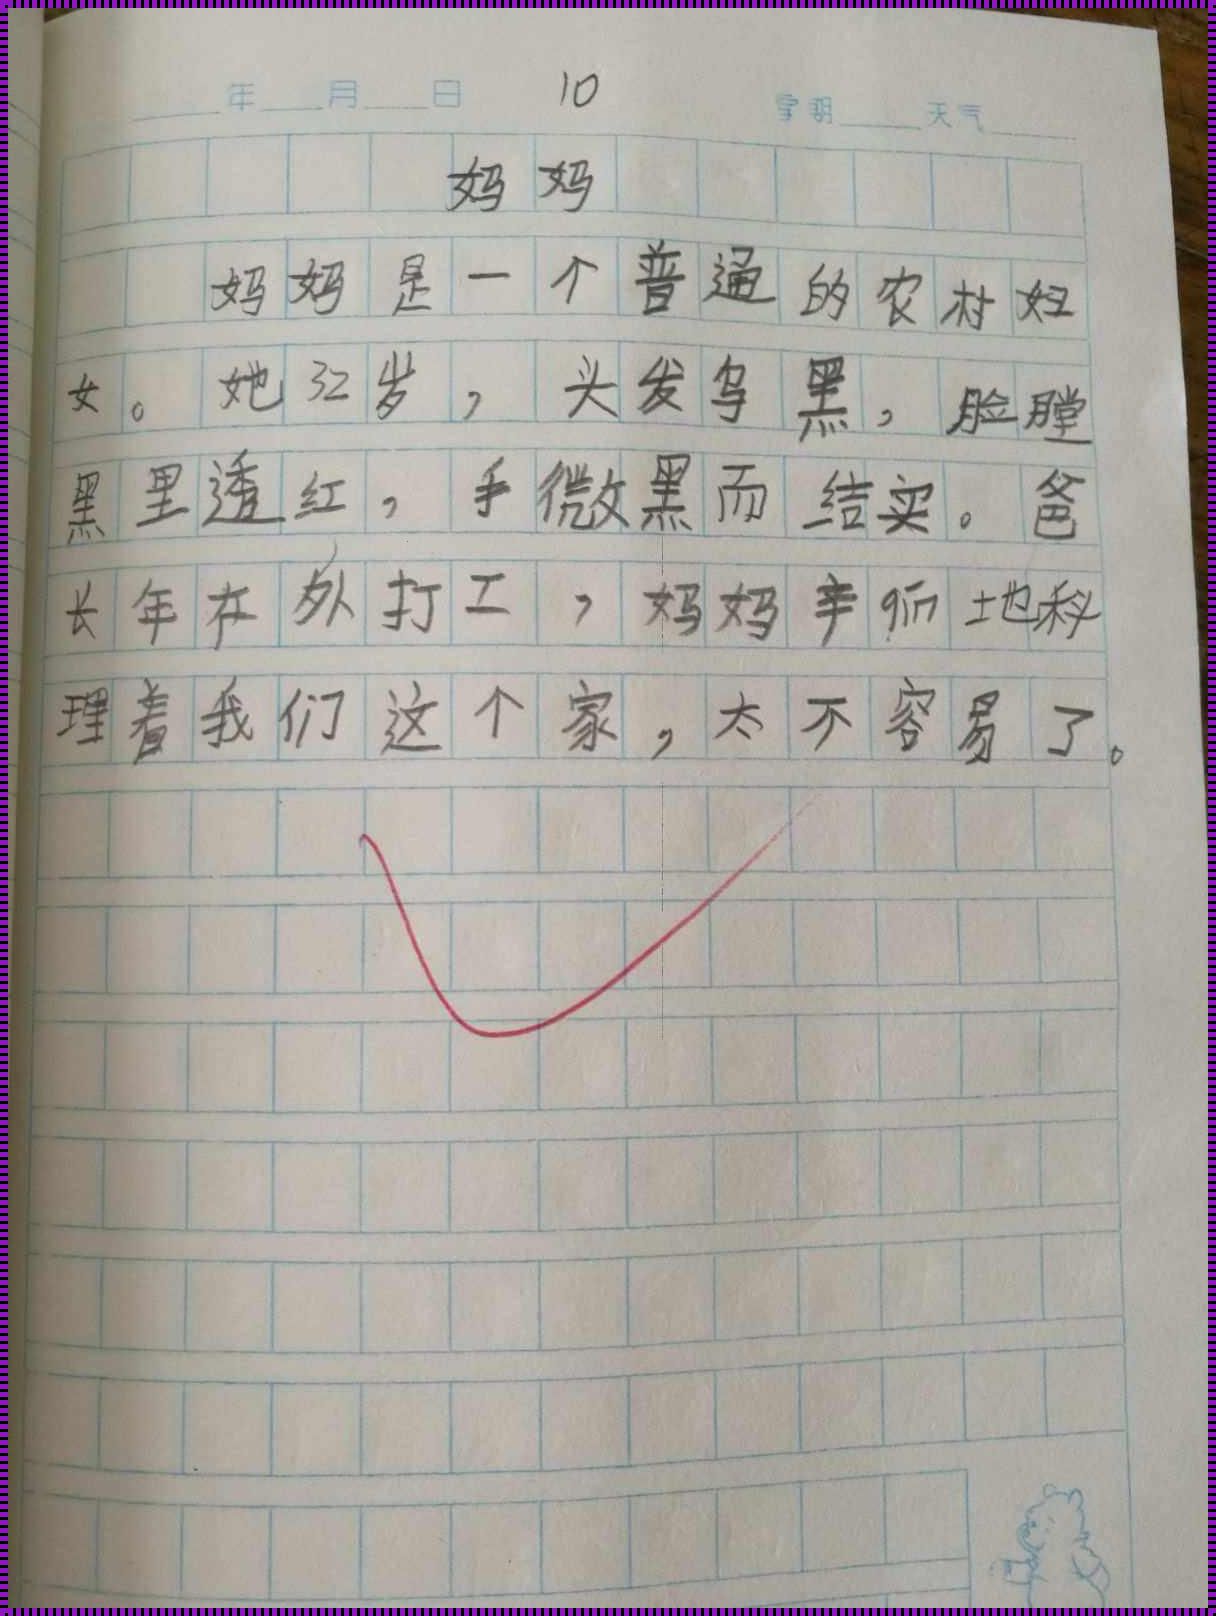 年 月 日 10 星期 天气
妈妈
妈妈是一个普通的农村妇
女。她32岁，头发乌黑，脸膛
黑里透红，手微黑而结实。爸
长年在外打工，妈妈辛 地料
理着我们这个家，太不容易了。